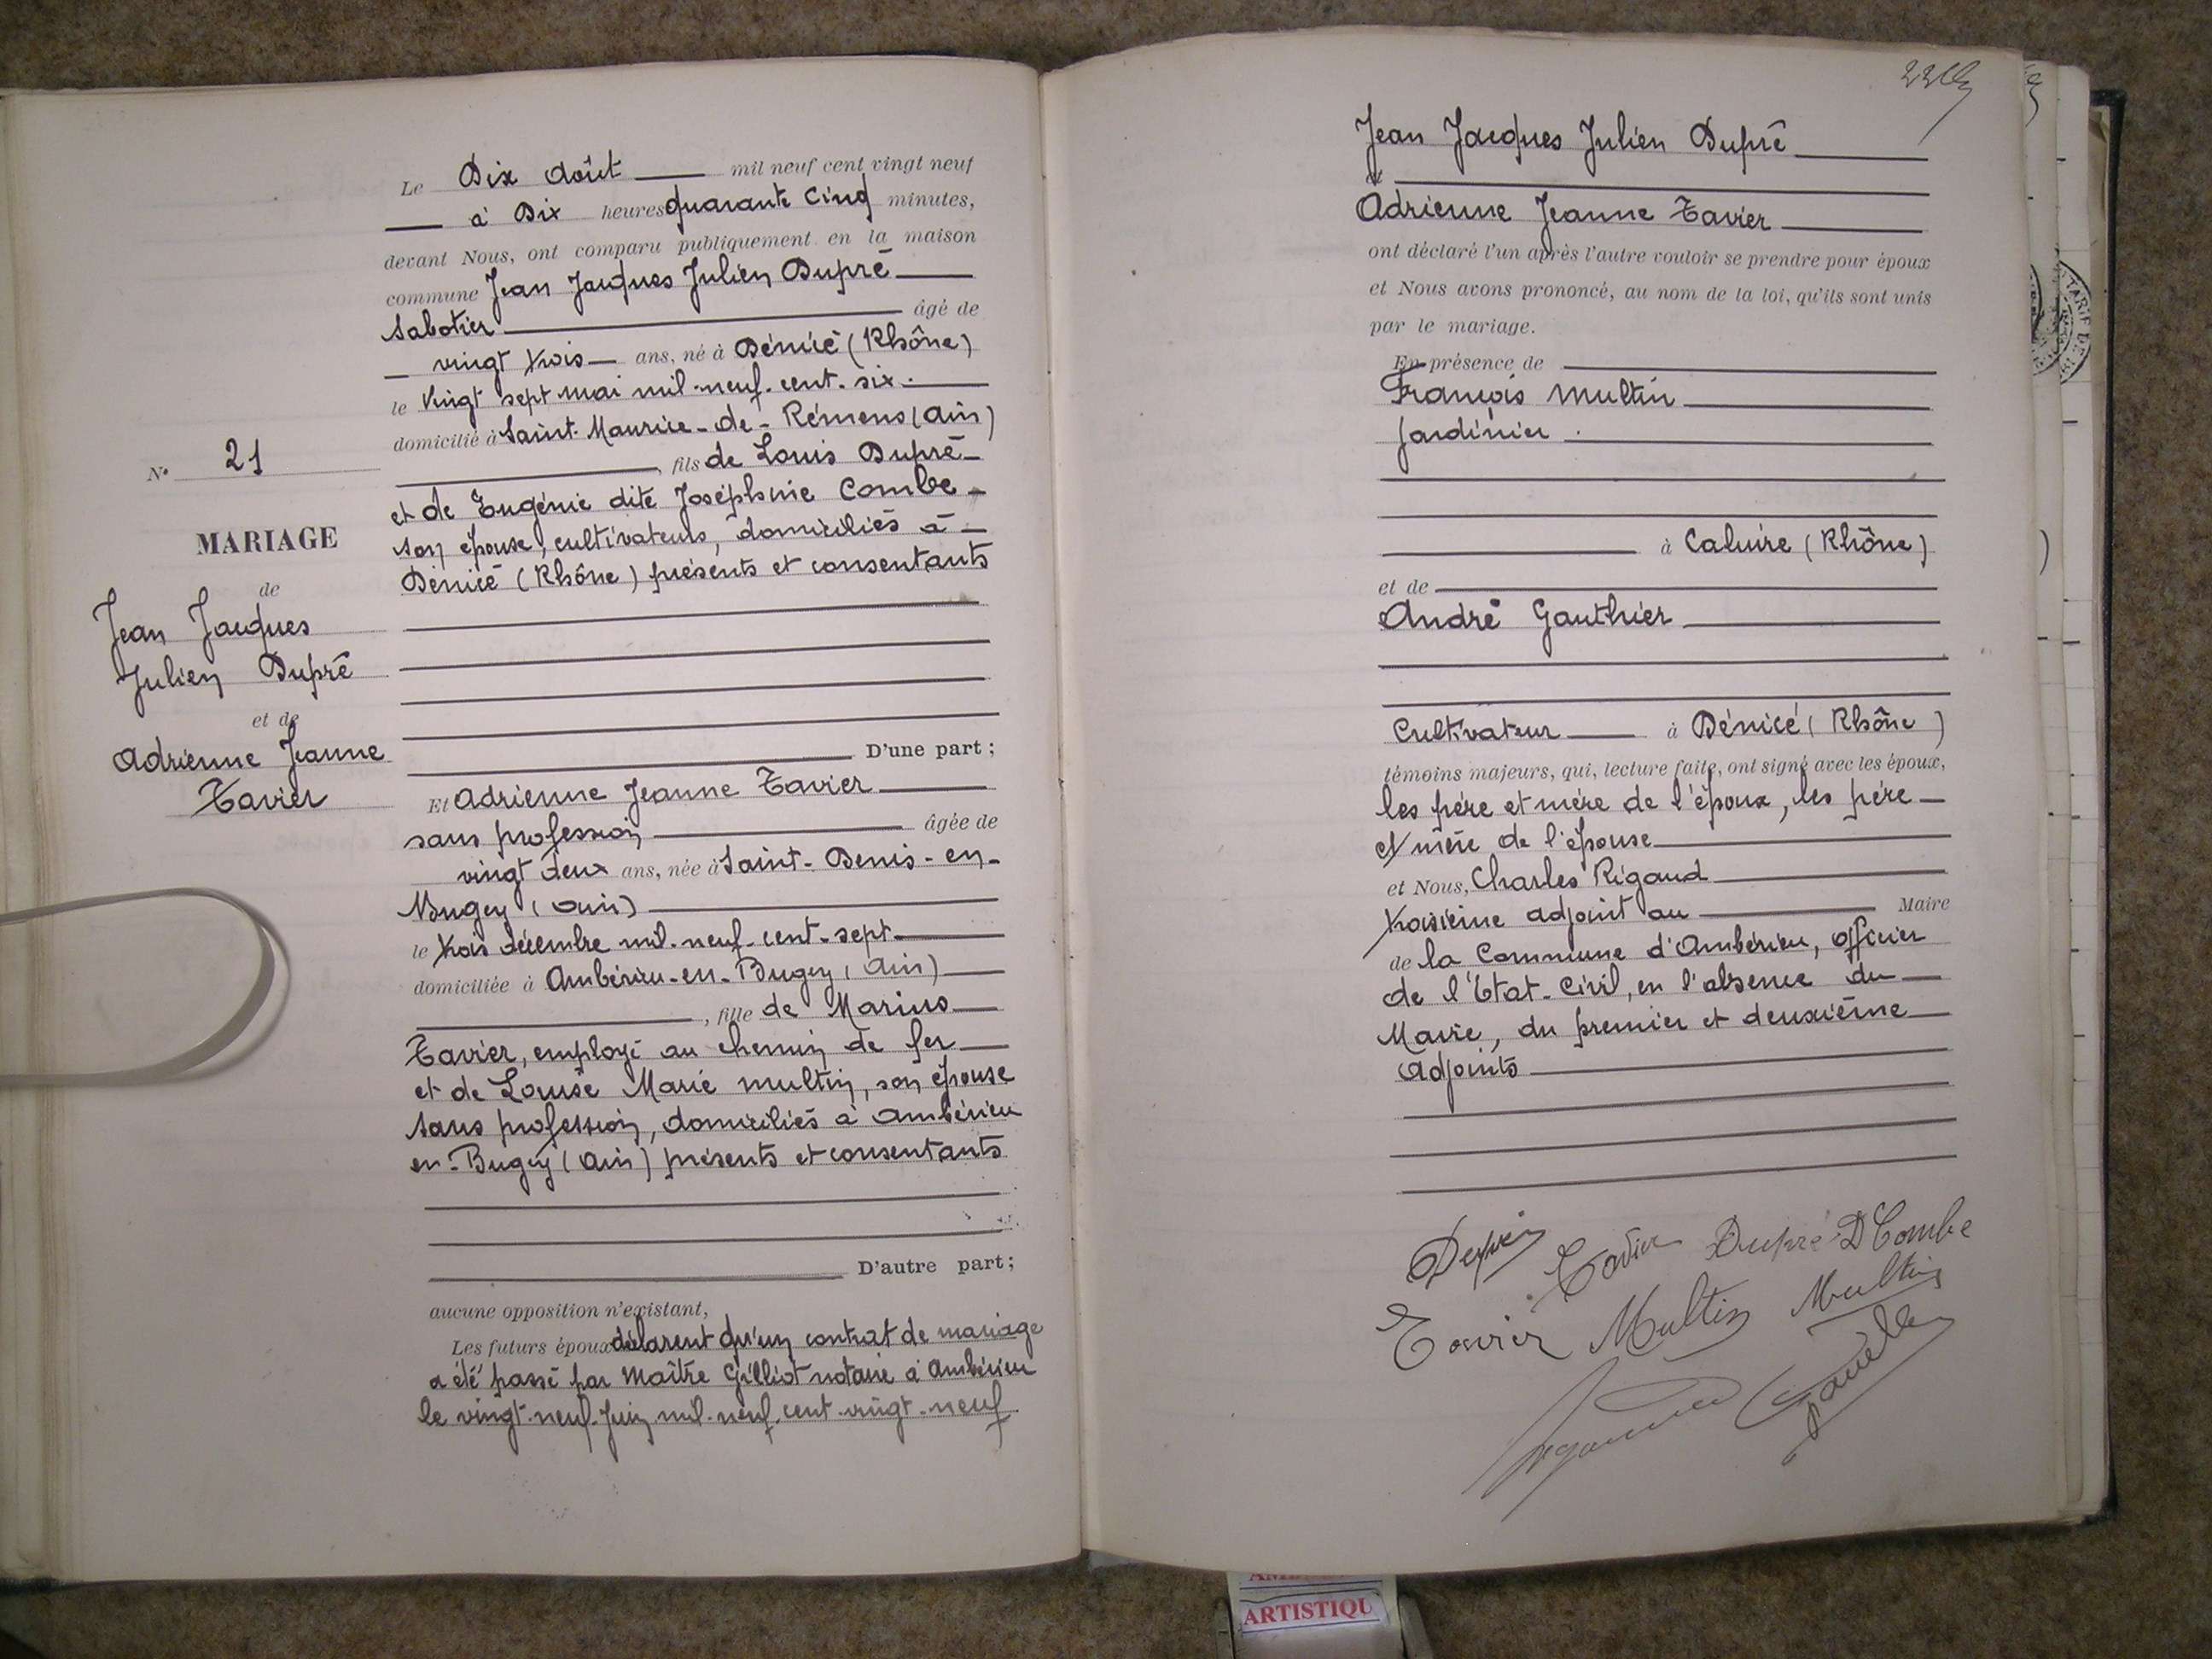 N° 21
MARIAGE
de
Jean Jacques
Julien Dupré
et de
Adrienne Jeanne
Tavier
Le Dix Août mil neuf cent vingt neuf
à Dix heures quarante cinq minutes,
devant Nous, ont comparu publiquement en la maison
commune Jean Jacques Julien Dupré
sabotier âgé de
vingt trois ans, né à Dénicé (Rhône)
le vingt sept mai mil-neuf-cent-six.
domicilié à Saint-Maurice-de-Rémens (Ain)
, fils de Louis Dupré
et de Eugénie dite Joséphine Combe
son épouse, cultivateurs, domiciliés à
Dénicé (Rhône) présents et consentants
D'une part ;
Et Adrienne Jeanne Tavier
sans profession âgée de
vingt deux ans, née à Saint-Denis-en-
Bugey (Ain)
le trois décembre mil-neuf-cent-sept
domiciliée à Ambérieu-en-Bugey (Ain)
, fille de Marius
Tavier, employé au chemin de fer
et de Louise Marie Multin, son épouse
sans profession, domiciliés à Ambérieu
en-Bugey (Ain) présents et consentants
D'autre part ;
aucune opposition n'existant,
Les futurs époux déclarent qu'un contrat de mariage
a été passé par Maître Gilliot notaire à Ambérieu
le vingt-neuf Juin mil-neuf-cent-vingt-neuf
Jean Jacques Julien Dupré
et
Adrienne Jeanne Tavier
ont déclaré l'un après l'autre vouloir se prendre pour époux
et Nous avons prononcé, au nom de la loi, qu'ils sont unis
par le mariage.
En présence de
François Multin
jardinier.
à Caluire (Rhône)
et de
André Gauthier
Cultivateur à Dénicé (Rhône)
témoins majeurs, qui, lecture faite, ont signé avec les époux,
les père et mère de l'époux, les père
et mère de l'épouse
et Nous, Charles Rigaud
troisième adjoint au Maire
de la Commune d'Ambérieu, officier
de l'Etat-Civil, en l'absence du
Maire, du premier et deuxième
adjoints
Tavier Dupré D Combe
Tavier Multin Multin
ARTISTIQU